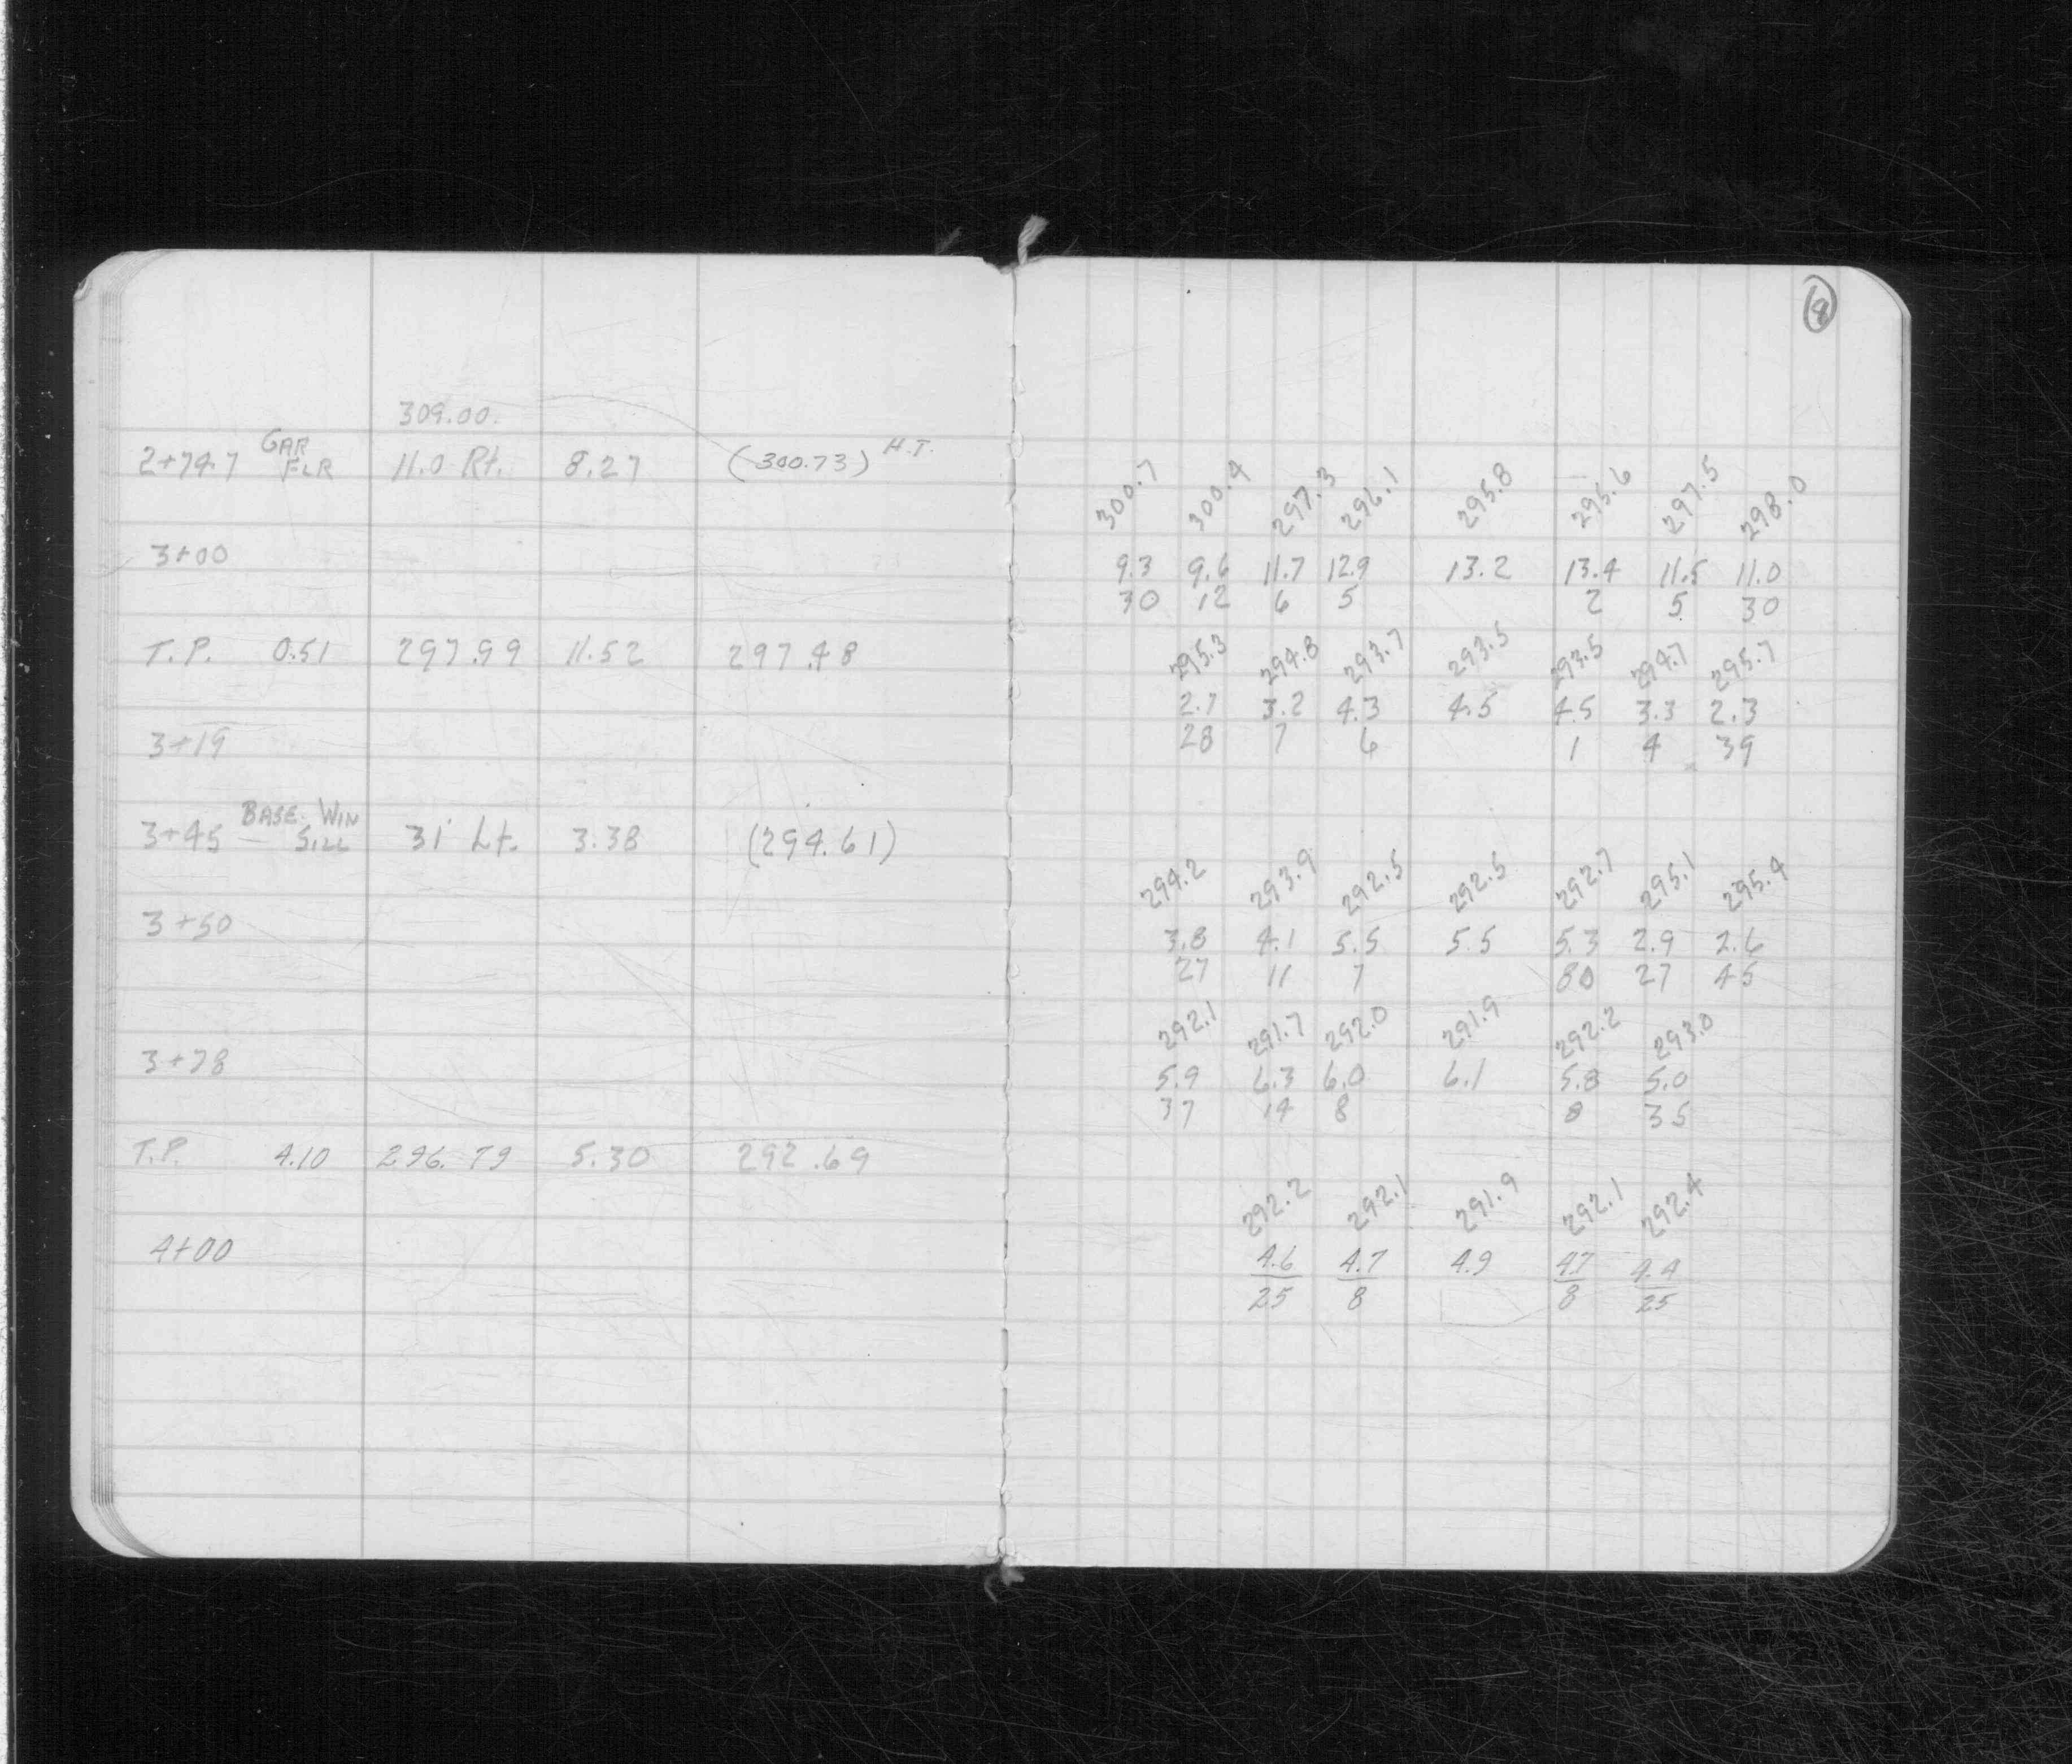 9
309.00
2+74.7 GAR FLR 11.0 Rt. 8.27 (300.73) H.T.
300.7 300.4 297.3 296.1 295.8 295.6 297.5 298.0
3+00
9.3 9.6 11.7 12.9 13.2 13.4 11.5 11.0
30 12 6 5 2 5 30
T.P. 0.51 297.99 11.52 297.48
295.3 294.8 293.7 293.5 293.5 294.7 295.7
2.7 3.2 4.3 4.5 4.5 3.3 2.3
3+19
28 7 6 1 4 39
3+45 BASE. WIN SILL 31' Lt. 3.38 (294.61)
294.2 293.9 292.5 292.5 292.7 295.1 295.4
3+50
3.8 4.1 5.5 5.5 5.3 2.9 2.6
27 11 7 80 27 45
292.1 291.7 292.0 291.9 292.2 293.0
3+78
5.9 6.3 6.0 6.1 5.8 5.0
37 14 8 8 35
T.P. 4.10 296.79 5.30 292.69
292.2 292.1 291.9 292.1 292.4
4+00
4.6 4.7 4.9 4.7 4.4
25 8 8 25